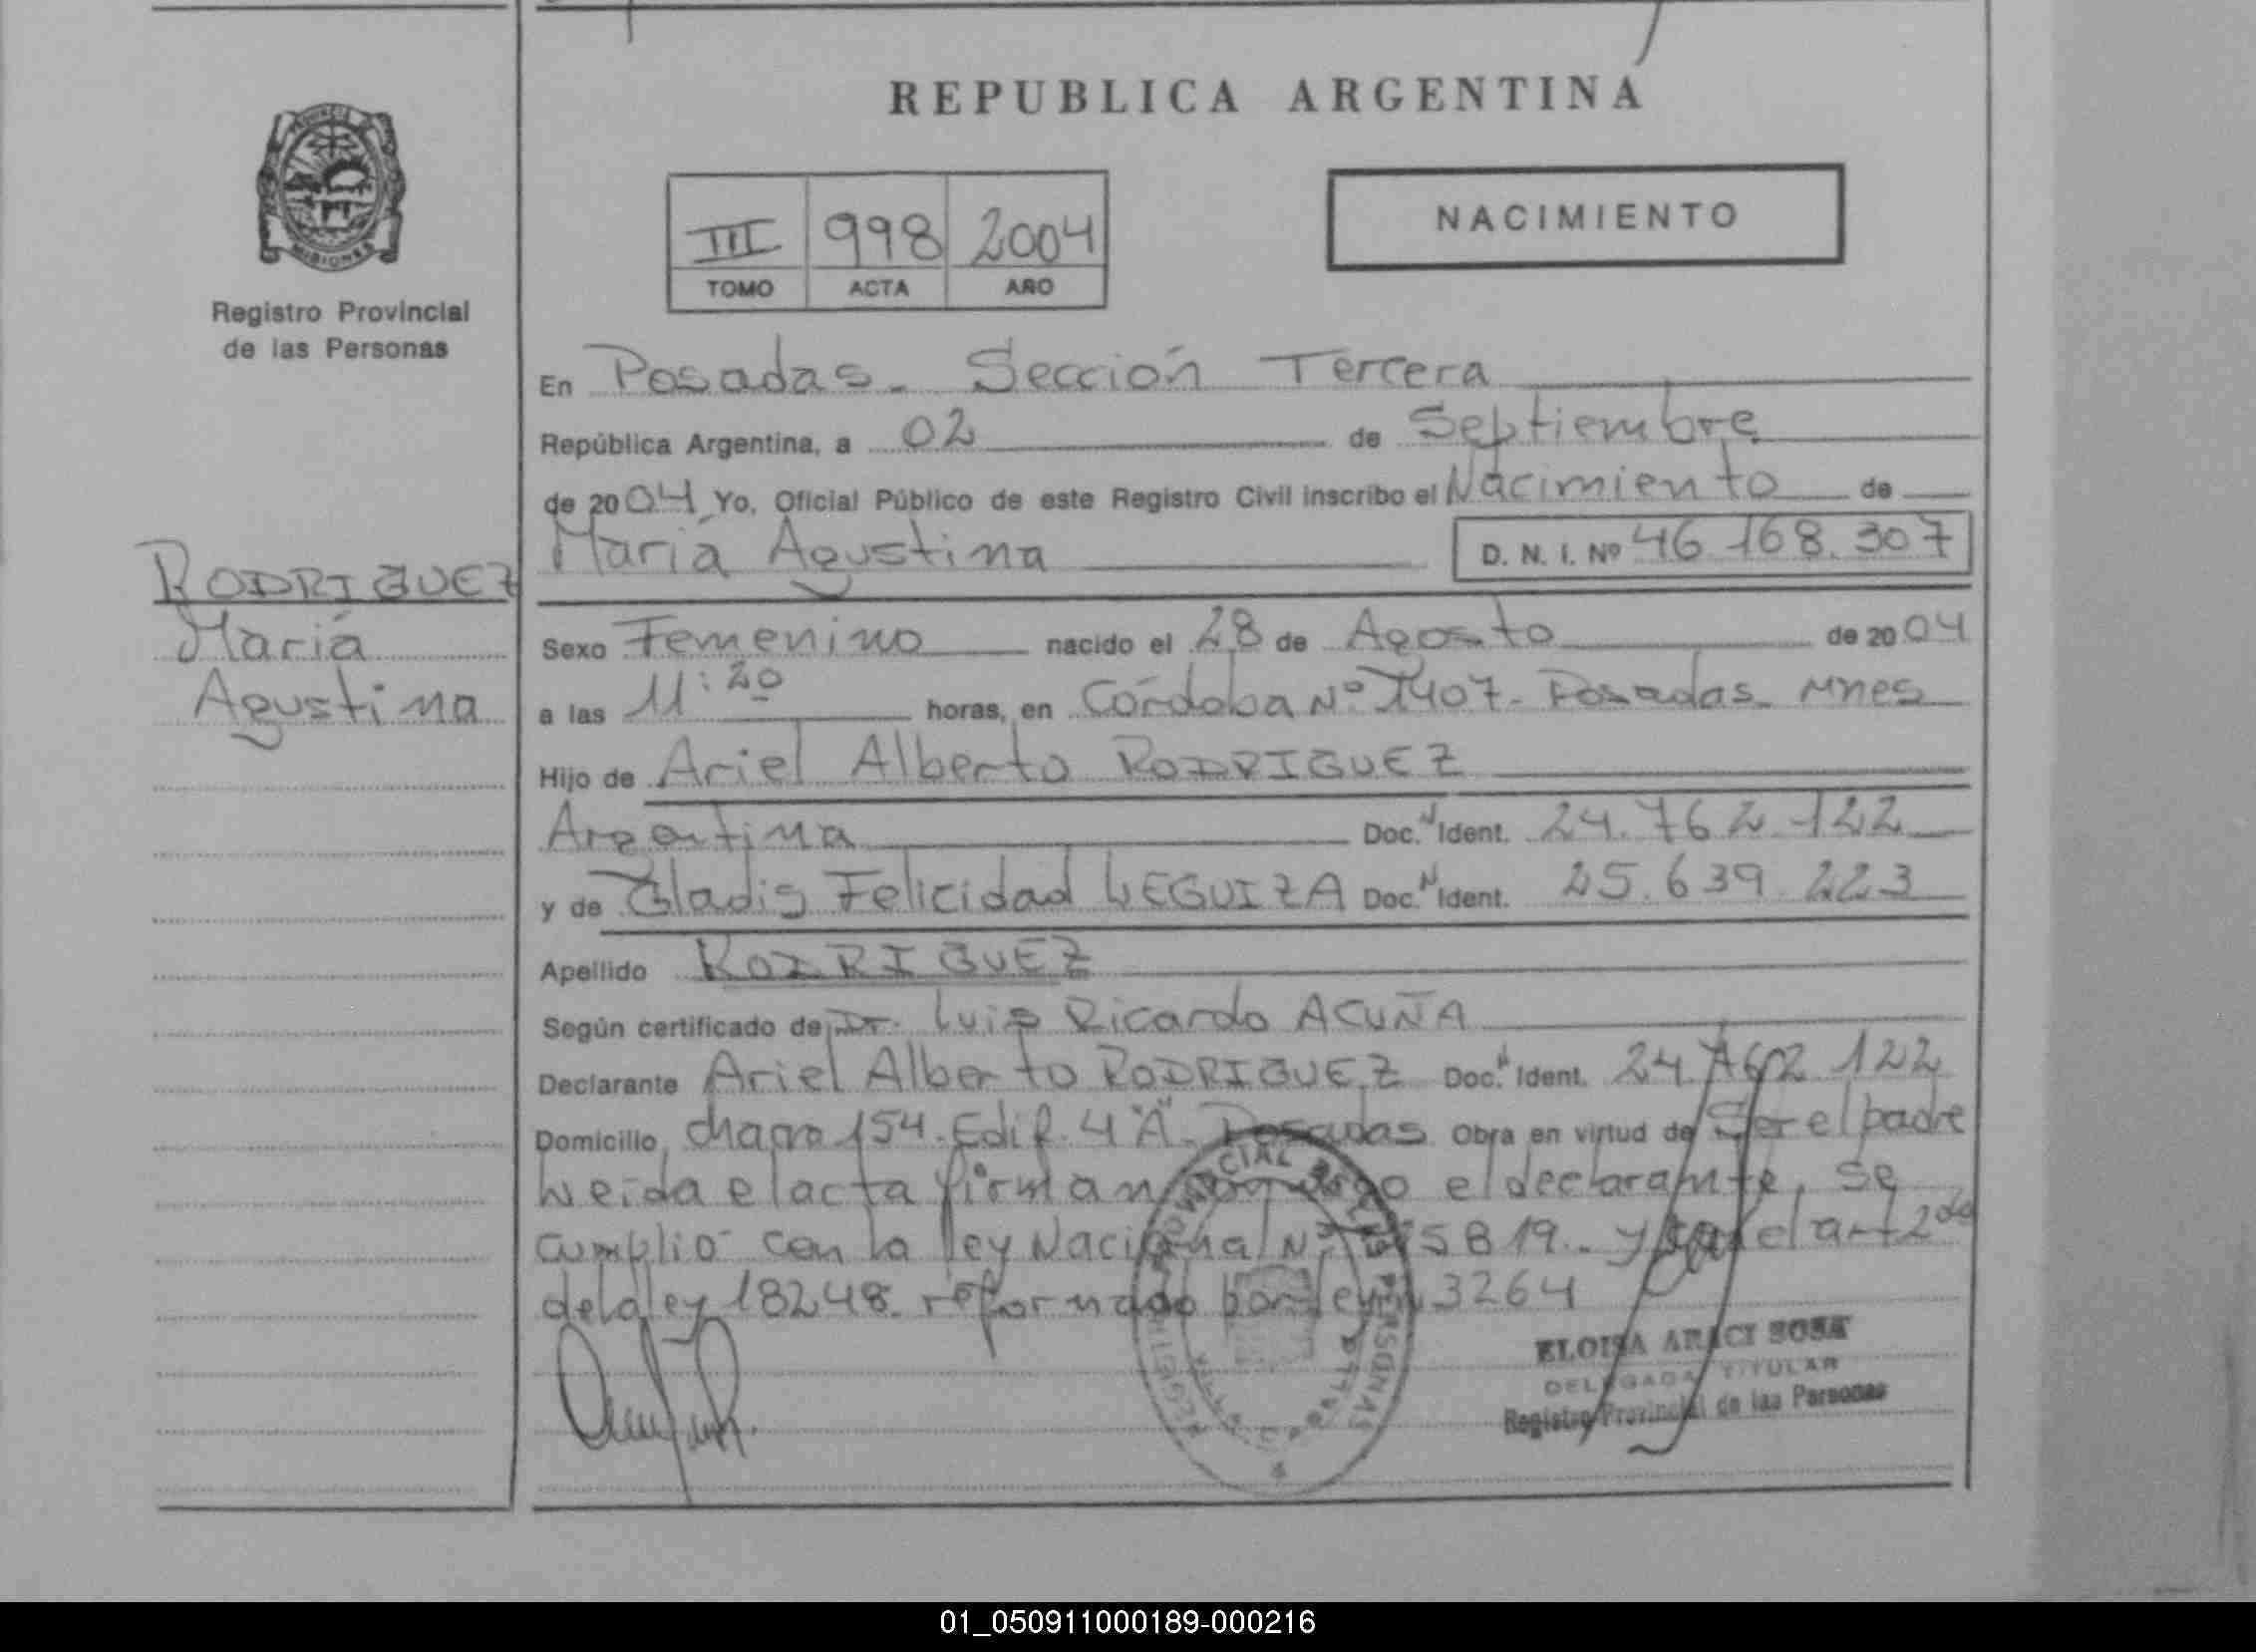 REPUBLICA ARGENTINA
PROVINCIA DE
MISIONES
Registro Provincial
de las Personas
III 998 2004
TOMO ACTA AÑO
NACIMIENTO
En Posadas. Sección Tercera
República Argentina, a 02 de Septiembre
de 2004 Yo, Oficial Público de este Registro Civil inscribo el Nacimiento de
María Agustina D. N. I. Nº 46.168.307
RODRIGUEZ
María
Agustina
Sexo Femenino nacido el 28 de Agosto de 2004
a las 11:20 horas, en Córdoba Nº 1407. Posadas. Mnes
Hijo de Ariel Alberto RODRIGUEZ
Argentina Doc. N Ident. 24.762.122
y de Gladis Felicidad LEGUIZA Doc. N Ident. 25.639.223
Apellido RODRIGUEZ
Según certificado de Dr. Luis Ricardo ACUÑA
Declarante Ariel Alberto RODRIGUEZ Doc. N Ident. 24.762.122
Domicilio chacra 154. Edif. 4 "A". Posadas Obra en virtud de Ser el padre
Leída el acta firman conmigo el declarante, se
cumplió con la ley Nacional Nº 25819. y el art 2do
de la ley 18248. reformado por ley 23264
ELOISA ARACI SOSA
DELEGADA TITULAR
Registro Provincial de las Personas
01_050911000189-000216